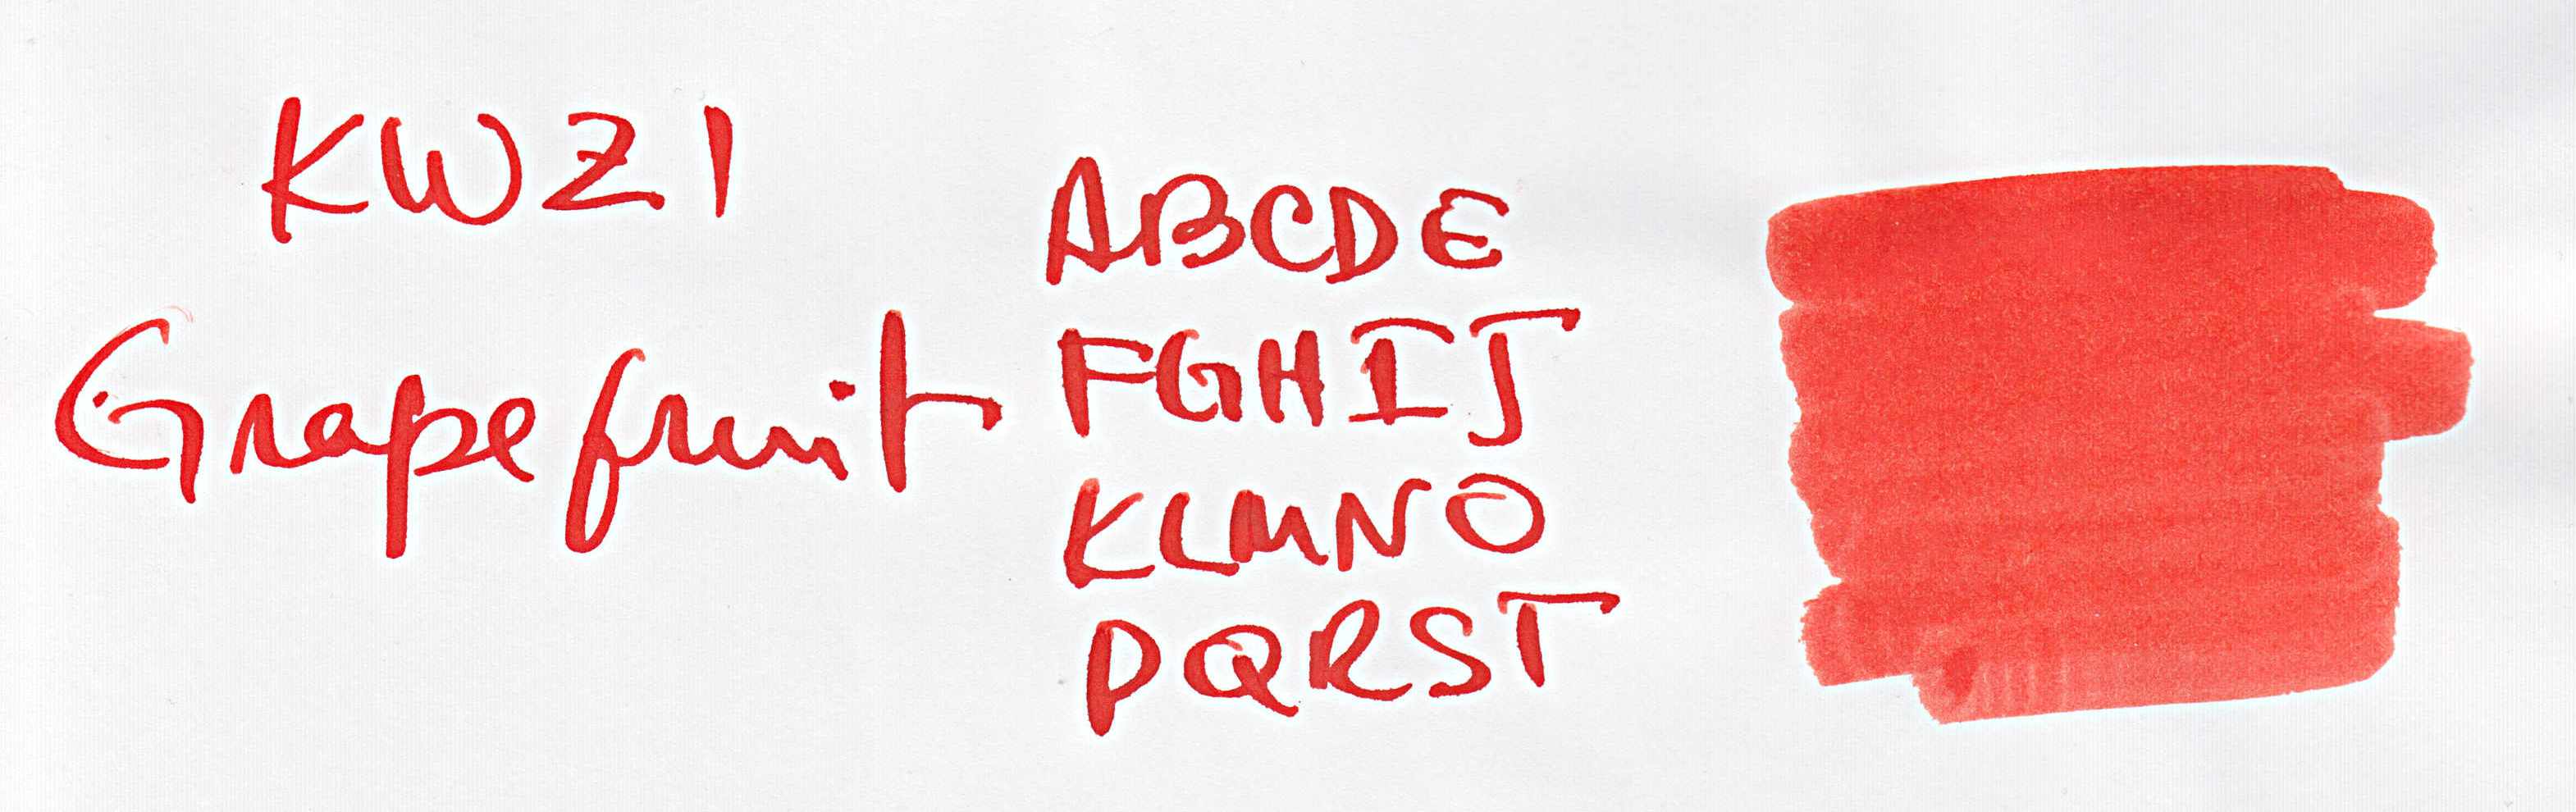 KWZI
Grapefruit
ABCDE
FGHIJ
KLMNO
PQRST